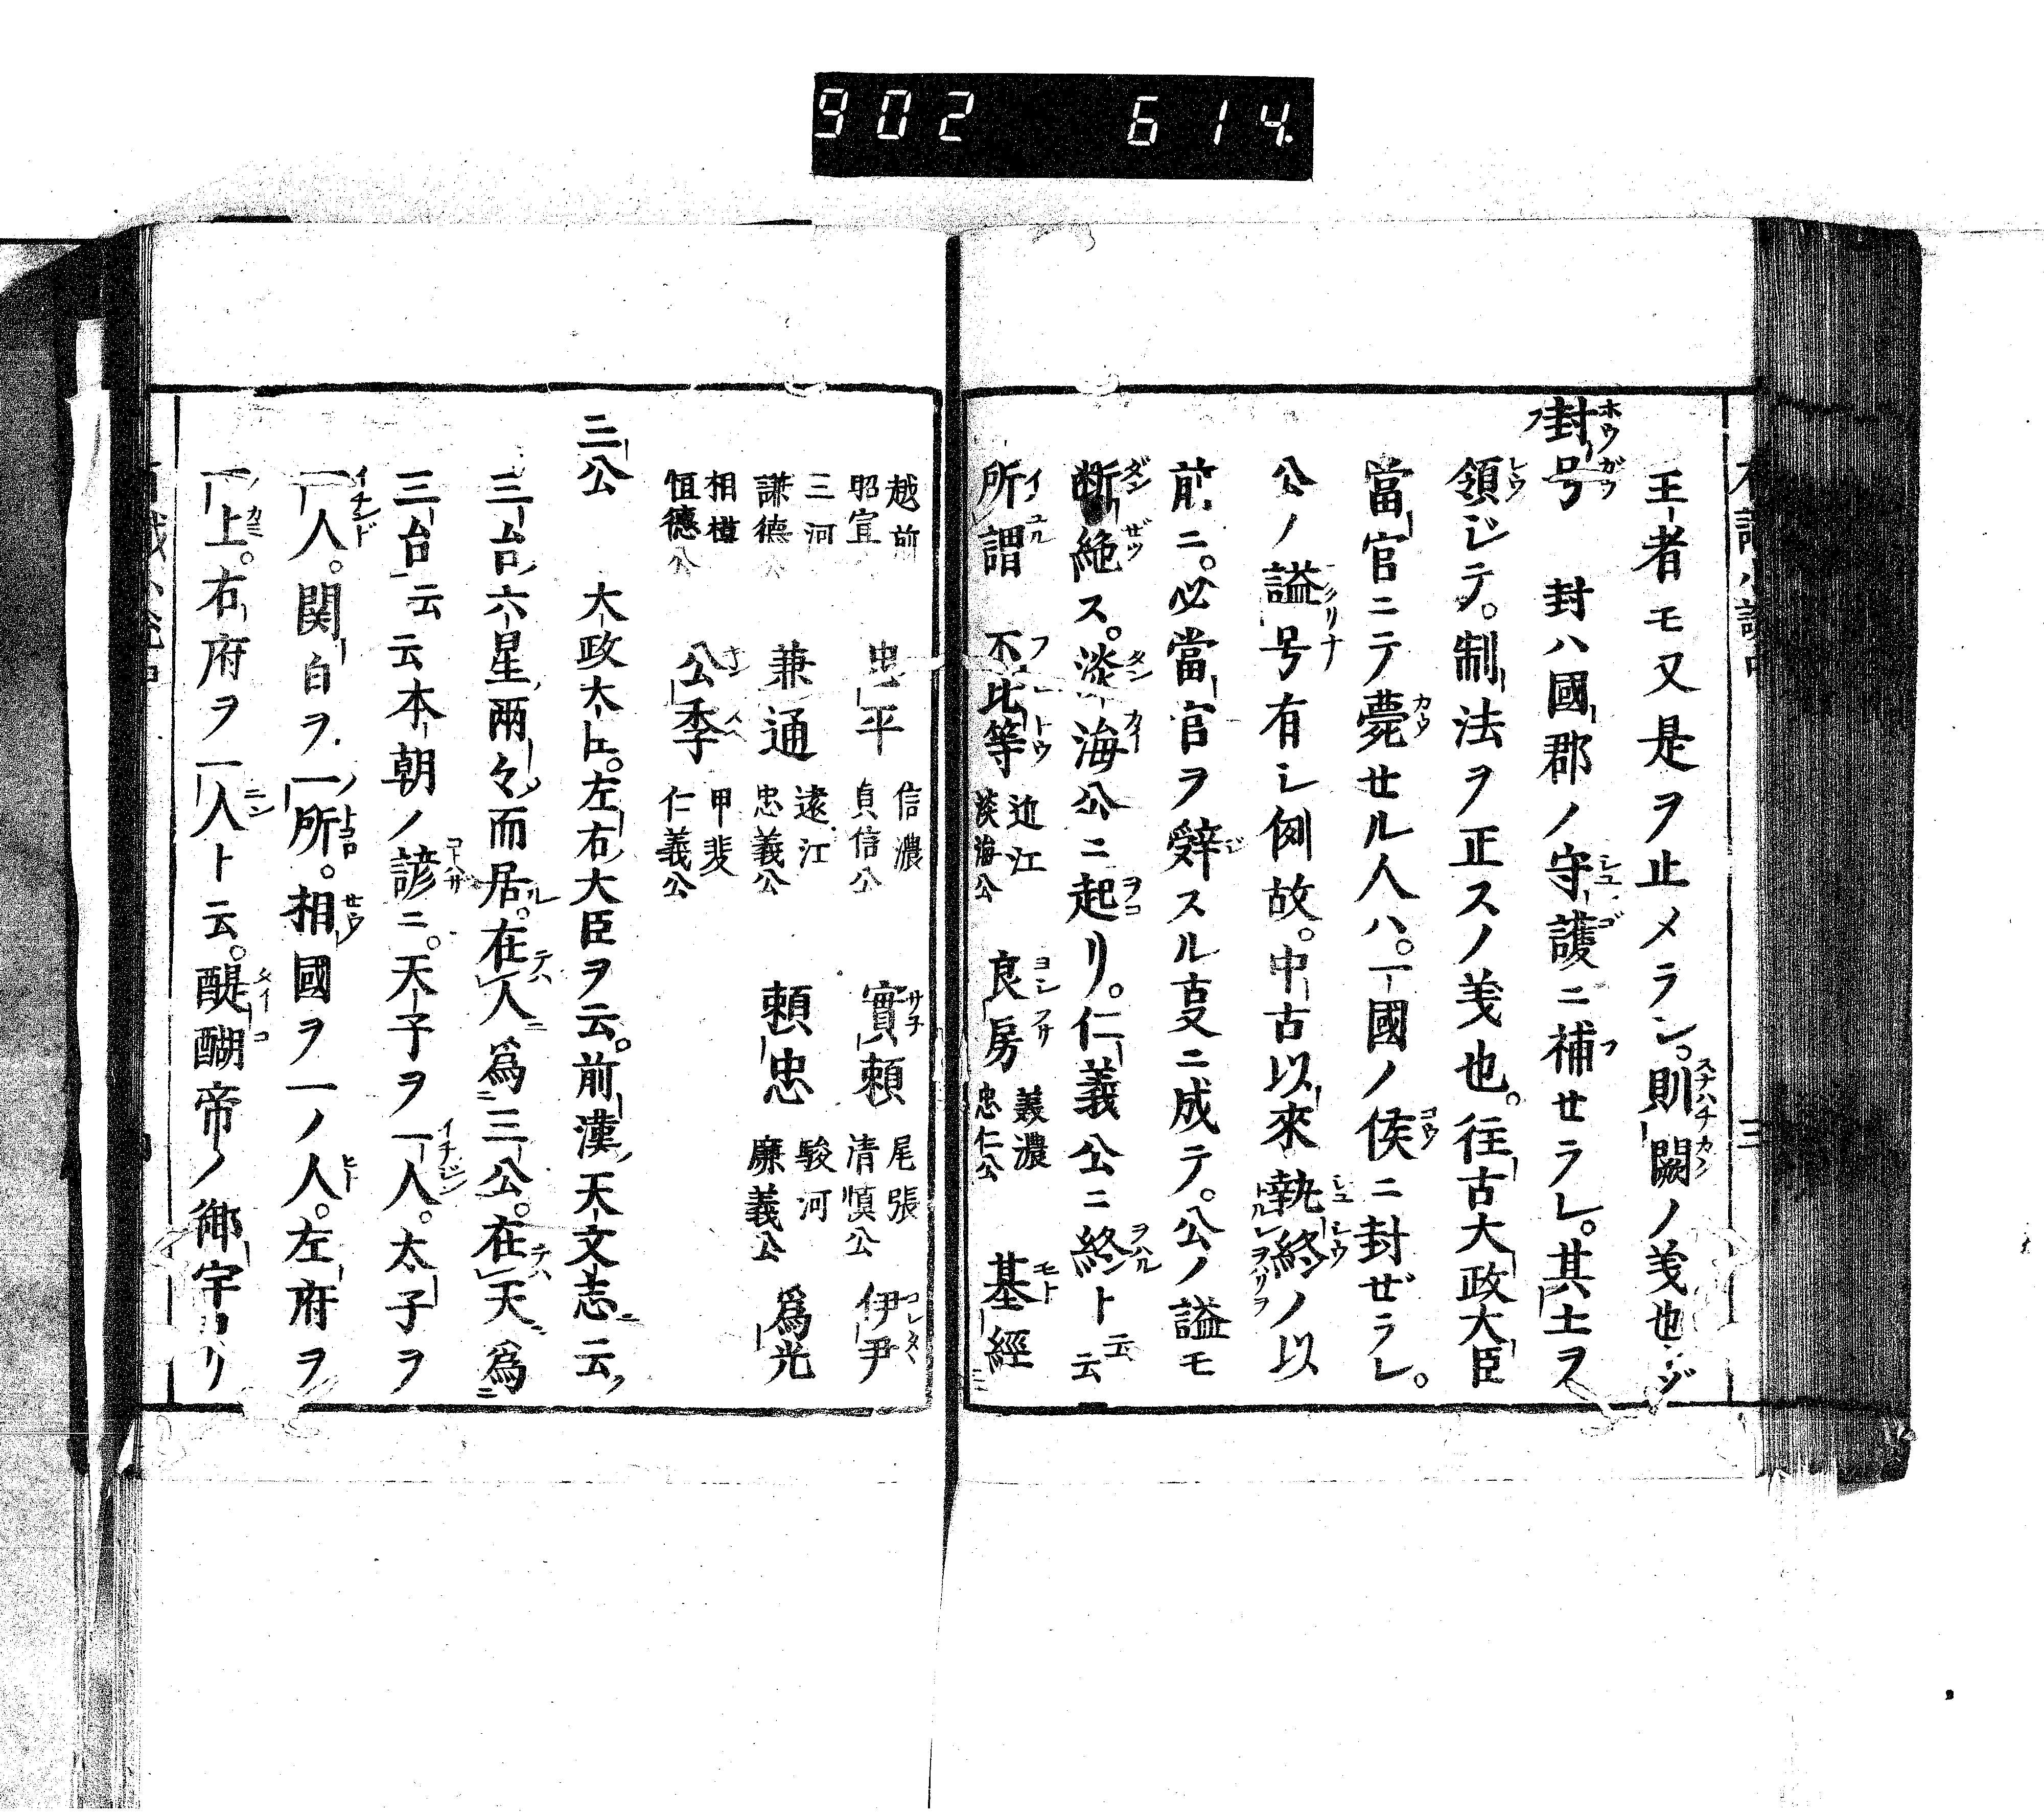 902 614
王者モ又是ヲ止メラン。則闕ノ義也
封号 封ハ國郡ノ守護ニ補セラレ。其土ヲ
領シテ。制法ヲ正スノ義也。往古大政大臣
當官ニテ薨セル人ハ。一國ノ侯ニ封ぜラレ。
公ノ謚号有シ例故。中古以來執終ノ以
前ニ。必當官ヲ辤スル叓ニ成テ。公ノ謚モ
断絶ス。淡海公ニ起リ。仁義公ニ終ト云云
所謂 不比等 近江 淡海公 良房 義濃 忠仁公 基經
越前 昭宣 忠平 信濃 貞信公 實頼 尾張 清慎公 伊尹
三河 謙德公 兼通 遠江 忠義公 頼忠 駿河 廉義公 爲光
相模 恒德公 公季 甲斐 仁義公
三公 大政大臣。左右大臣ヲ云。前漢天文志云
三台六星兩々而居。在人爲三公。在天爲
三台云云本朝ノ諺ニ。天子ヲ一人。太子ヲ
一人。関白ヲ一所。相國ヲ一ノ人。左府ヲ
一上。右府ヲ一人ト云。醍醐帝ノ御宇ヨリ